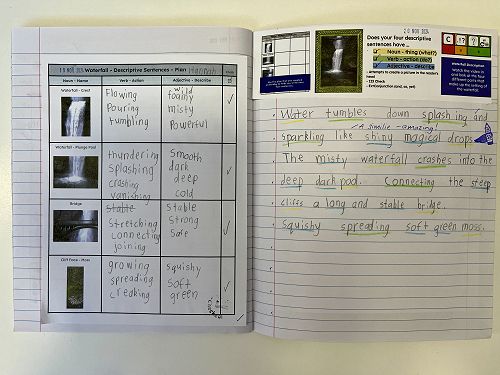 18 NOV 2024 Waterfall - Descriptive Sentences - Plan Hannah
Noun - Name Verb - Action Adjective - Describe
Waterfall - Crest
Flowing
Pouring
tumbling
wild
foamy
misty
Powerful
Waterfall - Plunge Pool
thundering
Splashing
crashing
vanishing
Smooth
dark
deep
cold
Bridge
Stable
Stretching
connecting
joining
Stable
Strong
Safe
Cliff Face - Moss
growing
spreading
creaking
Squishy
Soft
green
20 NOV 2024
Does your four descriptive
sentences have ...
Noun - thing (what?)
Verb - action (do?)
Adjective - describe
- Attempts to create a picture in the reader's
head
- 123 Check
Water tumbles down splashing and
A Similie - amazing!
sparkling like shiny magical drops.
The misty waterfall crashes into the
deep dark pool. Connecting the steep
cliffs a long and stable bridge.
Squishy spreading soft green moss.